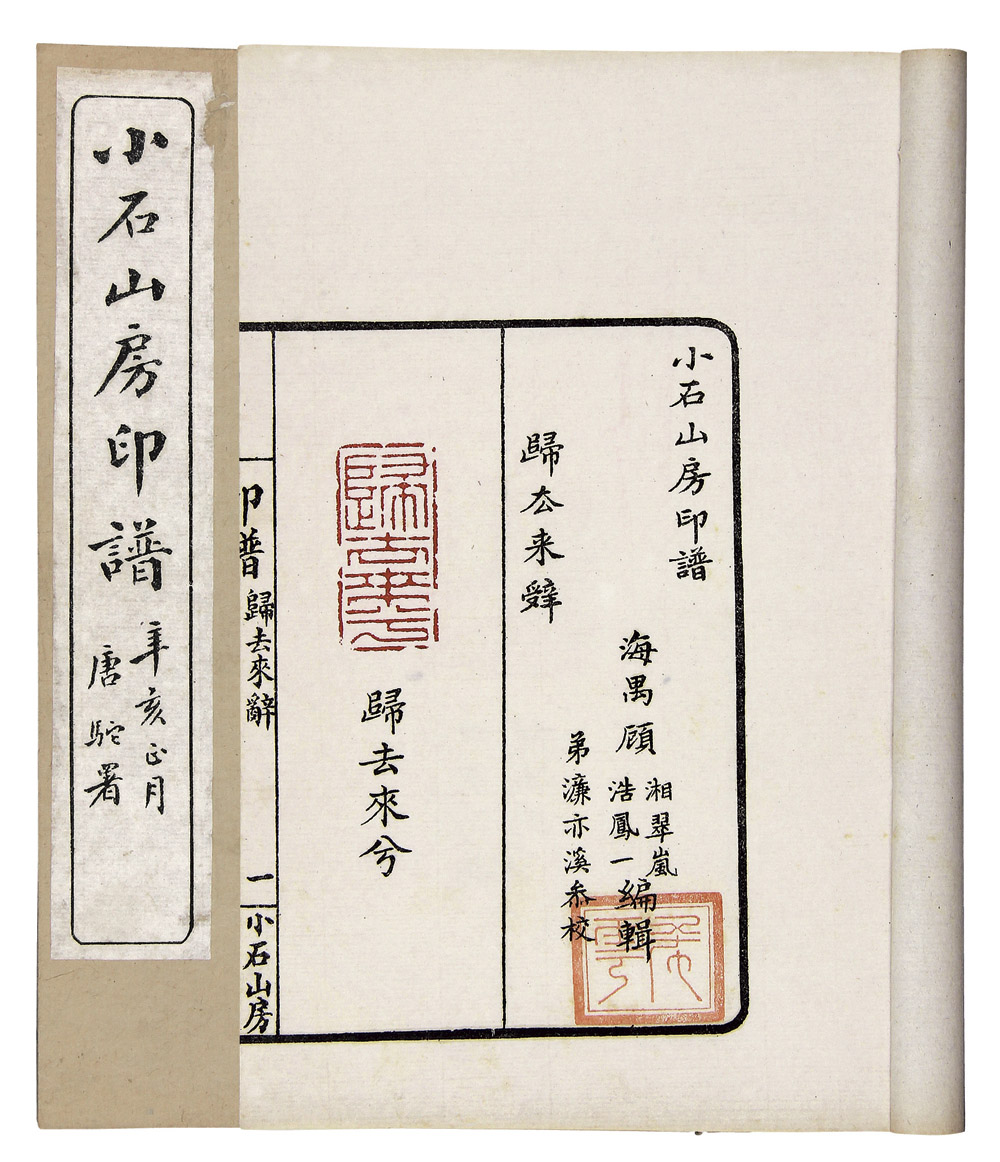 小石山房印譜
辛亥正月
唐駝署
小石山房印譜
海禺顧
湘翠嵐
浩鳳一
編輯
弟濂亦溪叅校
歸厺来辤
歸去來兮
歸去來兮
印譜
歸去來辭
一
小石山房